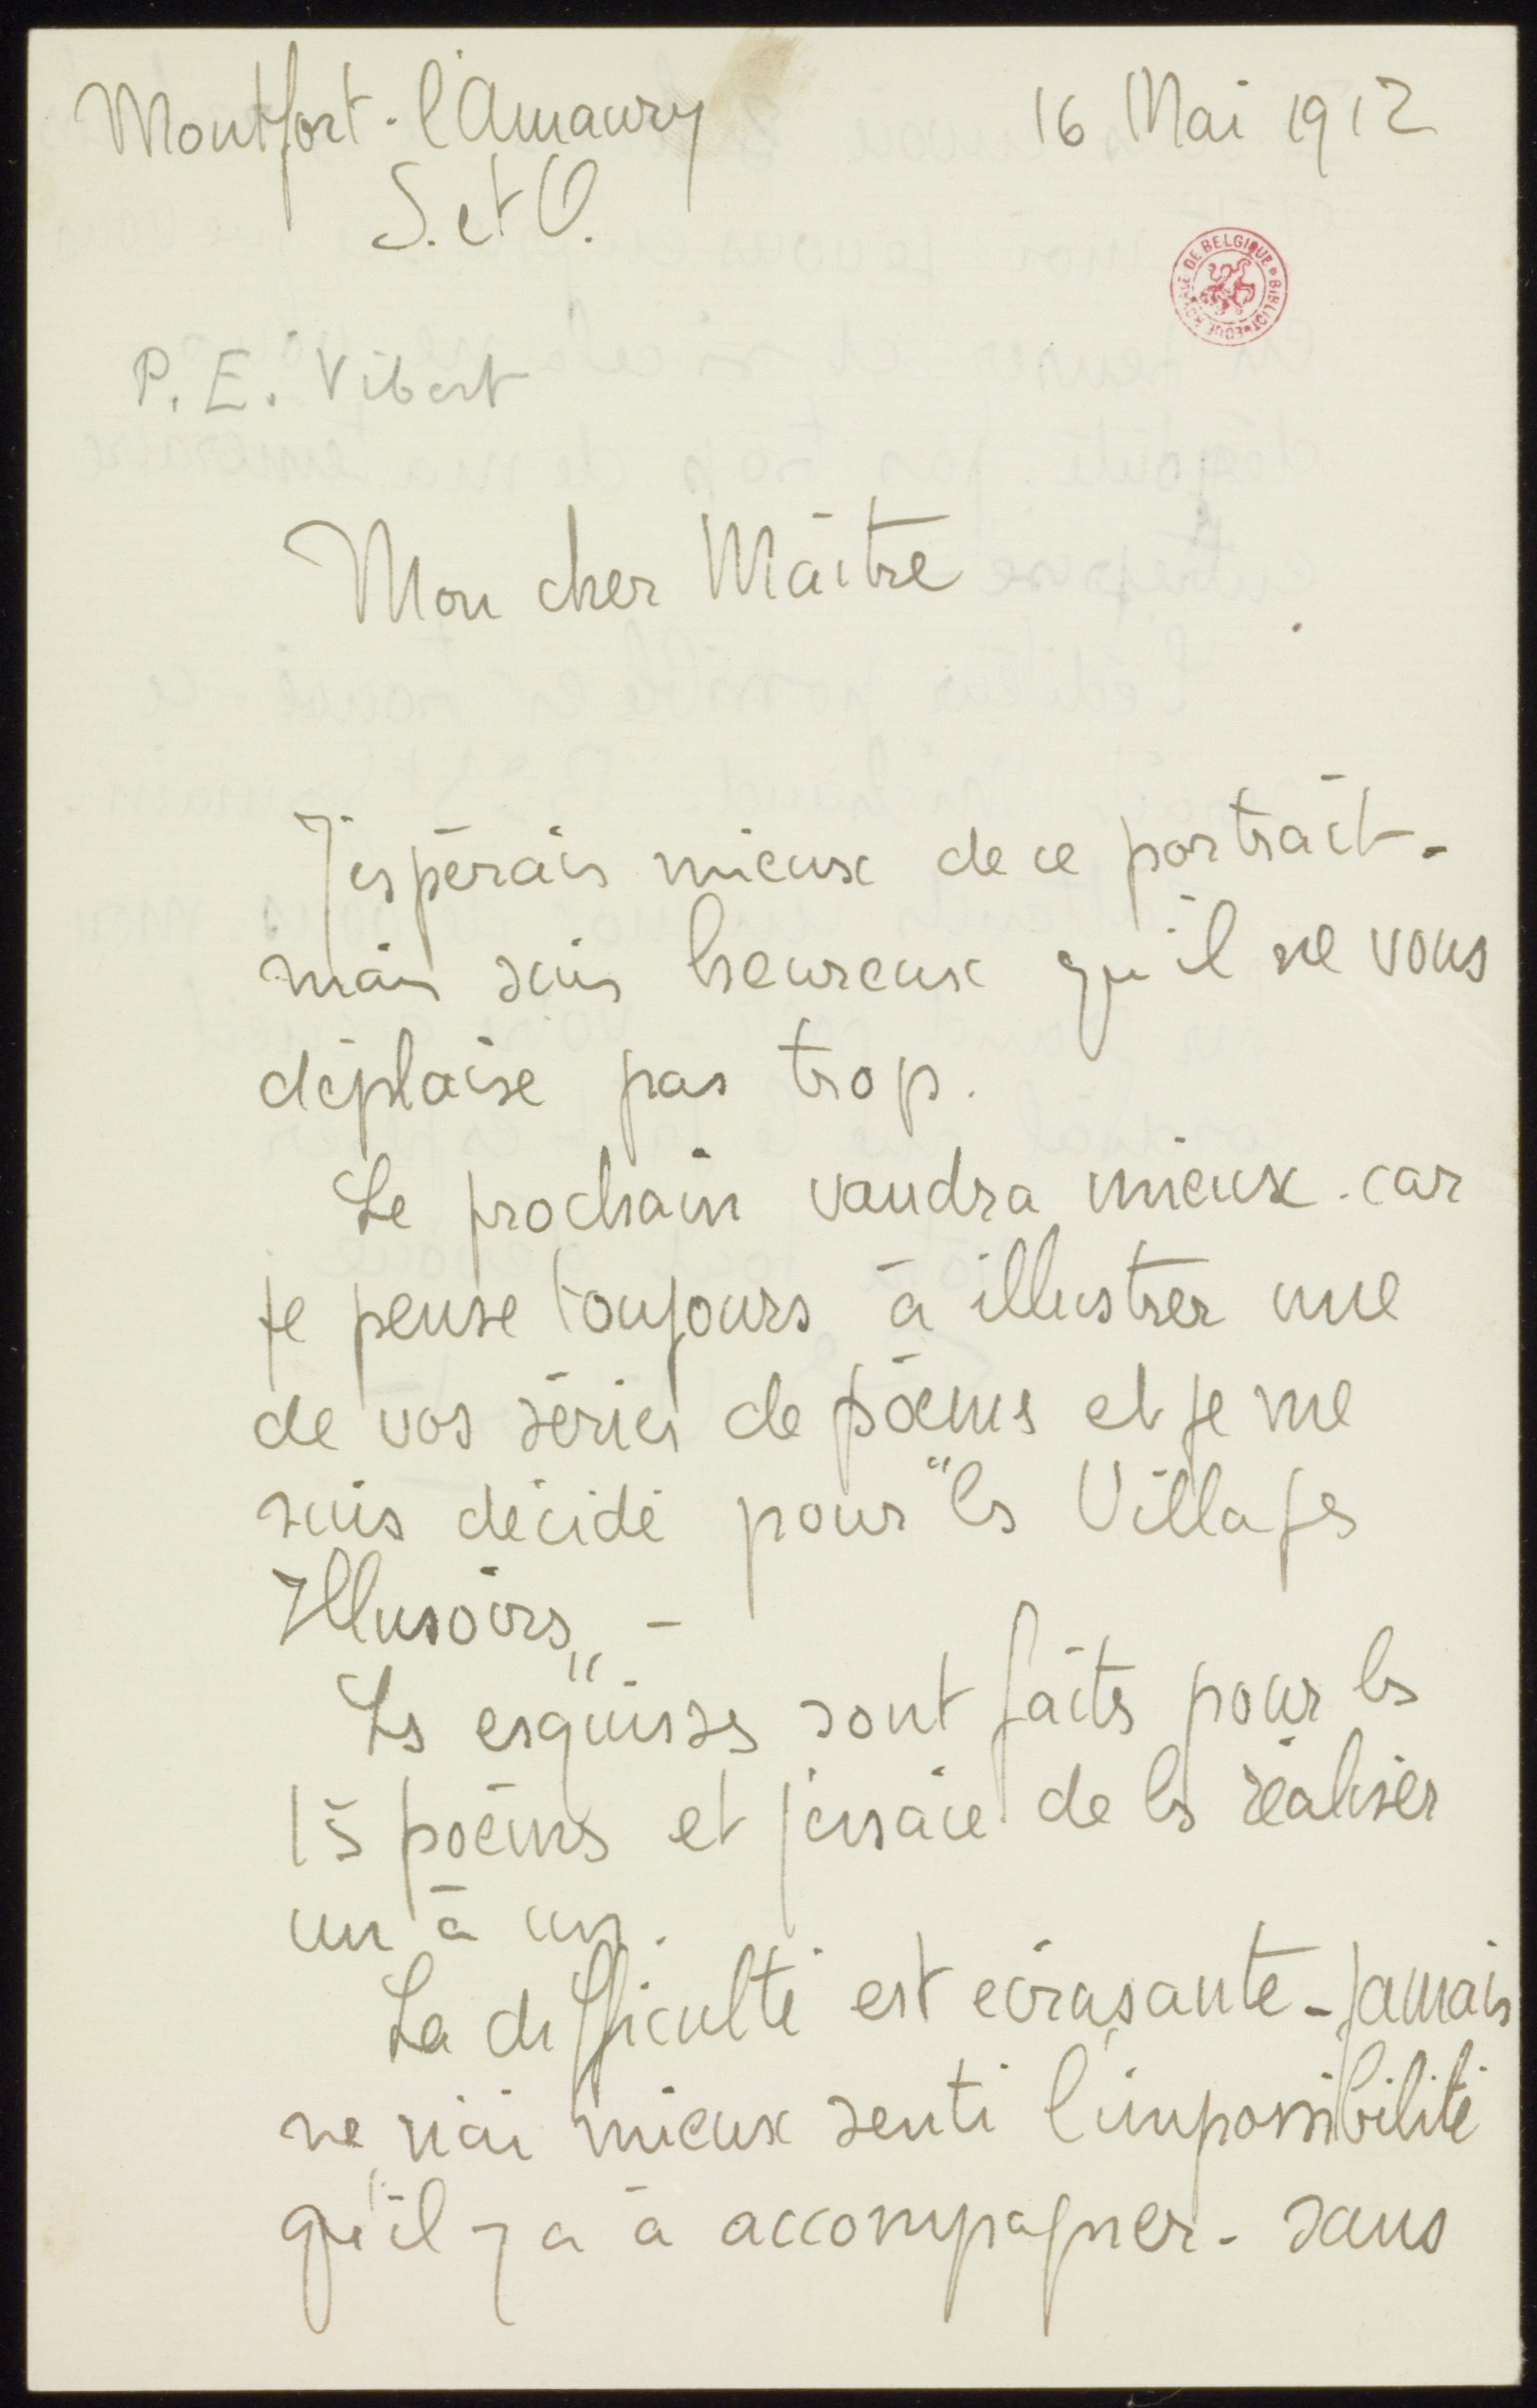 Montfort-l'Amaury 16 Mai 1912
S. et O.
BIBLIOTHÈQUE ROYALE DE BELGIQUE
P. E. Vibert
Mon cher Maître
J'espérais mieux de ce portrait -
mais suis heureux qu'il ne vous
déplaise pas trop.
Le prochain vaudra mieux. car
je pense toujours à illustrer une
de vos séries de poèmes et je me
suis décidé pour "les Villages
Illusoires" -
Les esquisses sont faites pour les
15 poèmes et j'essaie de les réaliser
un à un.
La difficulté est écrasante - jamais
ne n'ai mieux senti l'impossibilité
qu'il y a à accompagner - sans